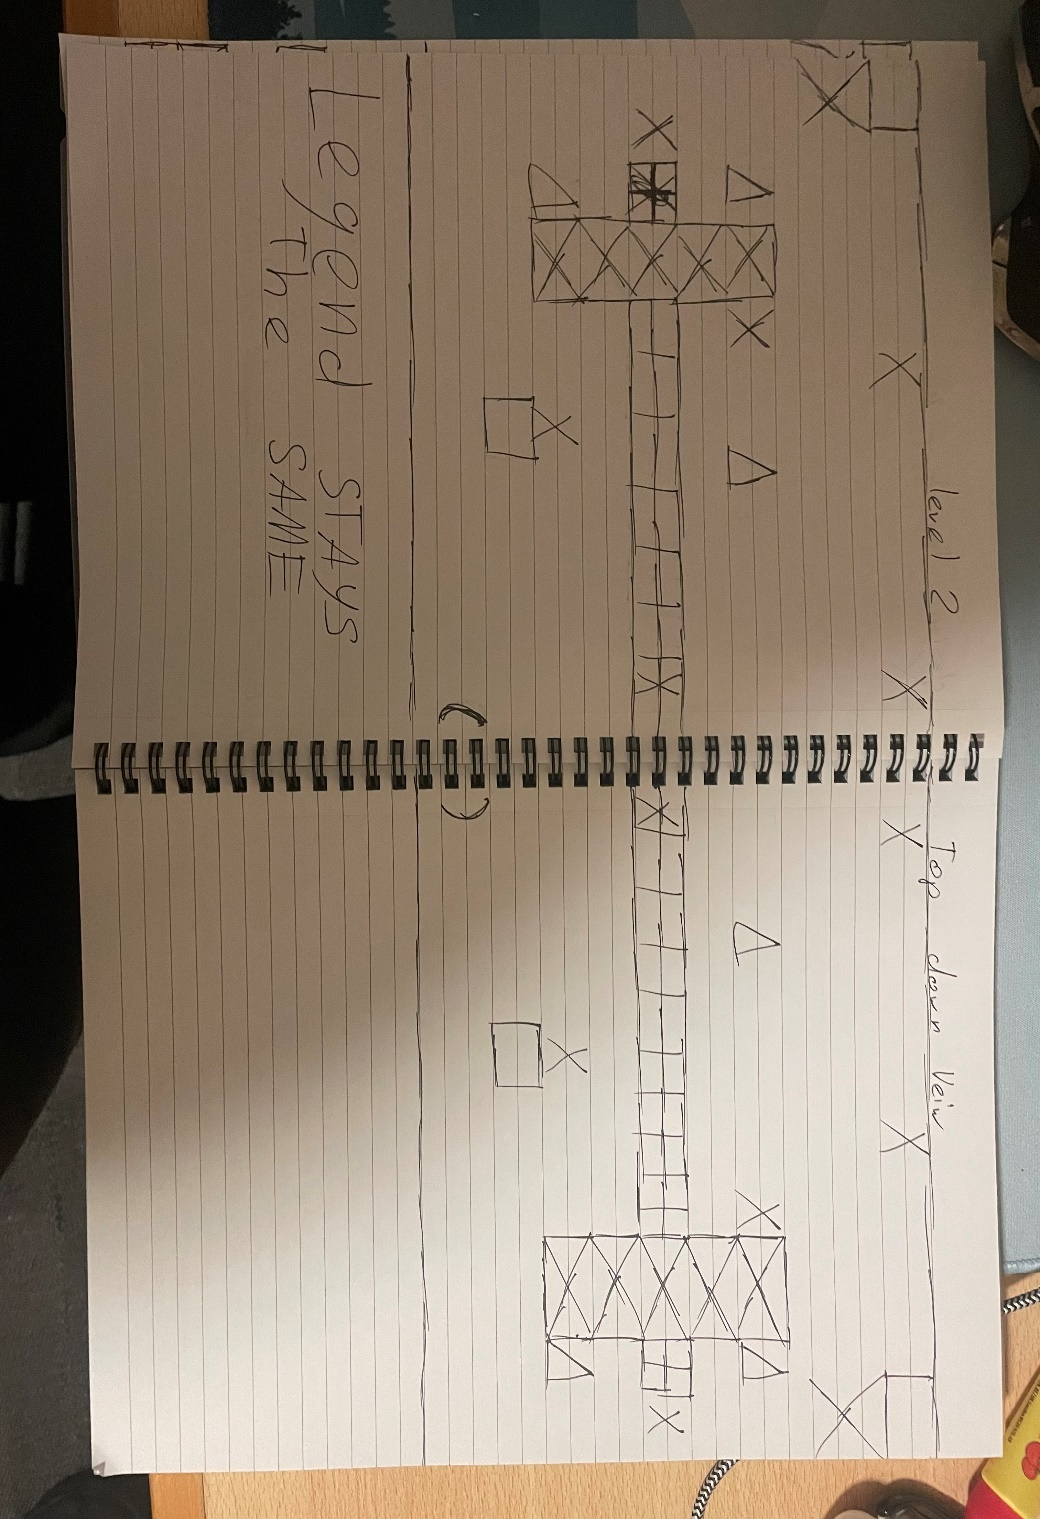 level 2 Top down Veiw
Legend STAYS
The SAME